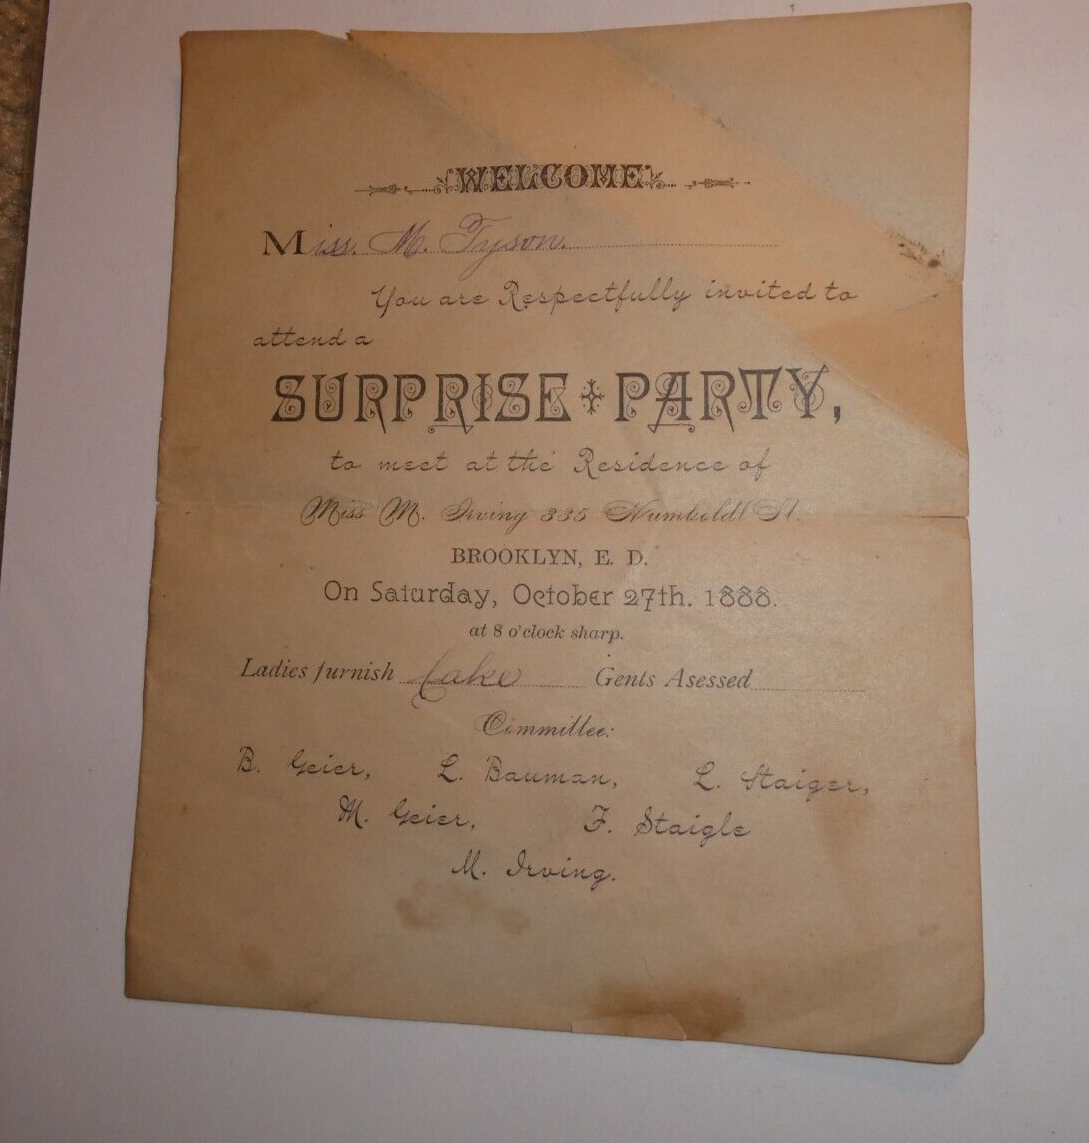 WELCOME
Miss. M. Tyson.
You are Respectfully invited to
attend a
SURPRISE PARTY,
to meet at the Residence of
Miss M. Irving 335 Humboldt St.
BROOKLYN, E. D.
On Saturday, October 27th. 1888.
at 8 o'clock sharp.
Ladies furnish Cake Gents Asessed
Committee:
B. Geier, L. Bauman, L. Staiger,
M. Geier, F. Staigle
M. Irving.